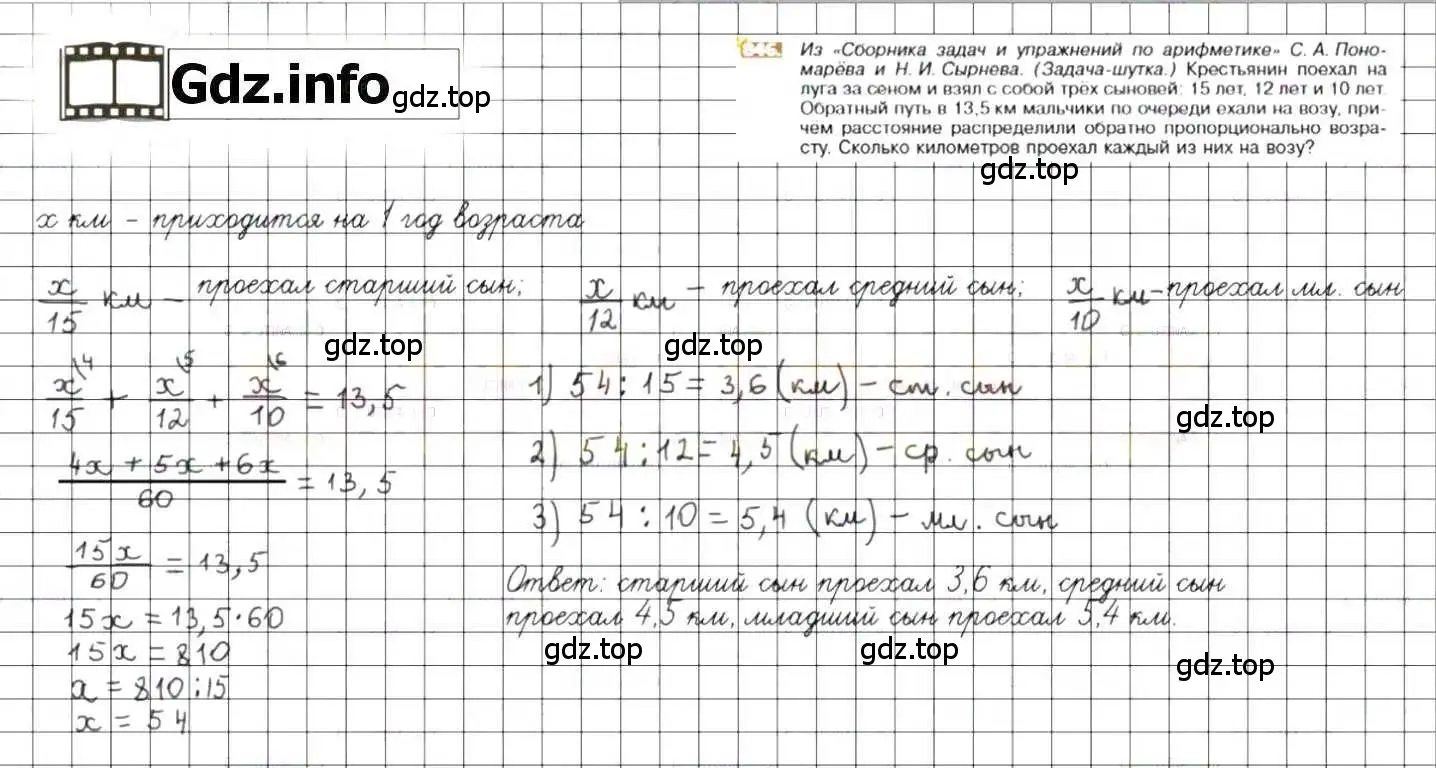 Gdz.info
gdz.top
846. Из «Сборника задач и упражнений по арифметике» С. А. Поно-
марёва и Н. И. Сырнева. (Задача-шутка.) Крестьянин поехал на
луга за сеном и взял с собой трёх сыновей: 15 лет, 12 лет и 10 лет.
Обратный путь в 13,5 км мальчики по очереди ехали на возу, при-
чём расстояние распределили обратно пропорционально возра-
сту. Сколько километров проехал каждый из них на возу?
gdz.top
x км – приходится на 1 год возраста
x/15 км – проехал старший сын; x/12 км – проехал средний сын; x/10 км – проехал мл. сын
gdz.top
gdz.top
x\4/15 + x\5/12 + x\6/10 = 13,5
(4x + 5x + 6x)/60 = 13,5
15x/60 = 13,5
15x = 13,5·60
15x = 810
x = 810:15
x = 54
1) 54 : 15 = 3,6 (км) – ст. сын
gdz.top
2) 54 : 12 = 4,5 (км) – ср. сын
3) 54 : 10 = 5,4 (км) – мл. сын
Ответ: старший сын проехал 3,6 км, средний сын
проехал 4,5 км, младший сын проехал 5,4 км.
gdz.top
gdz.top
gdz.top